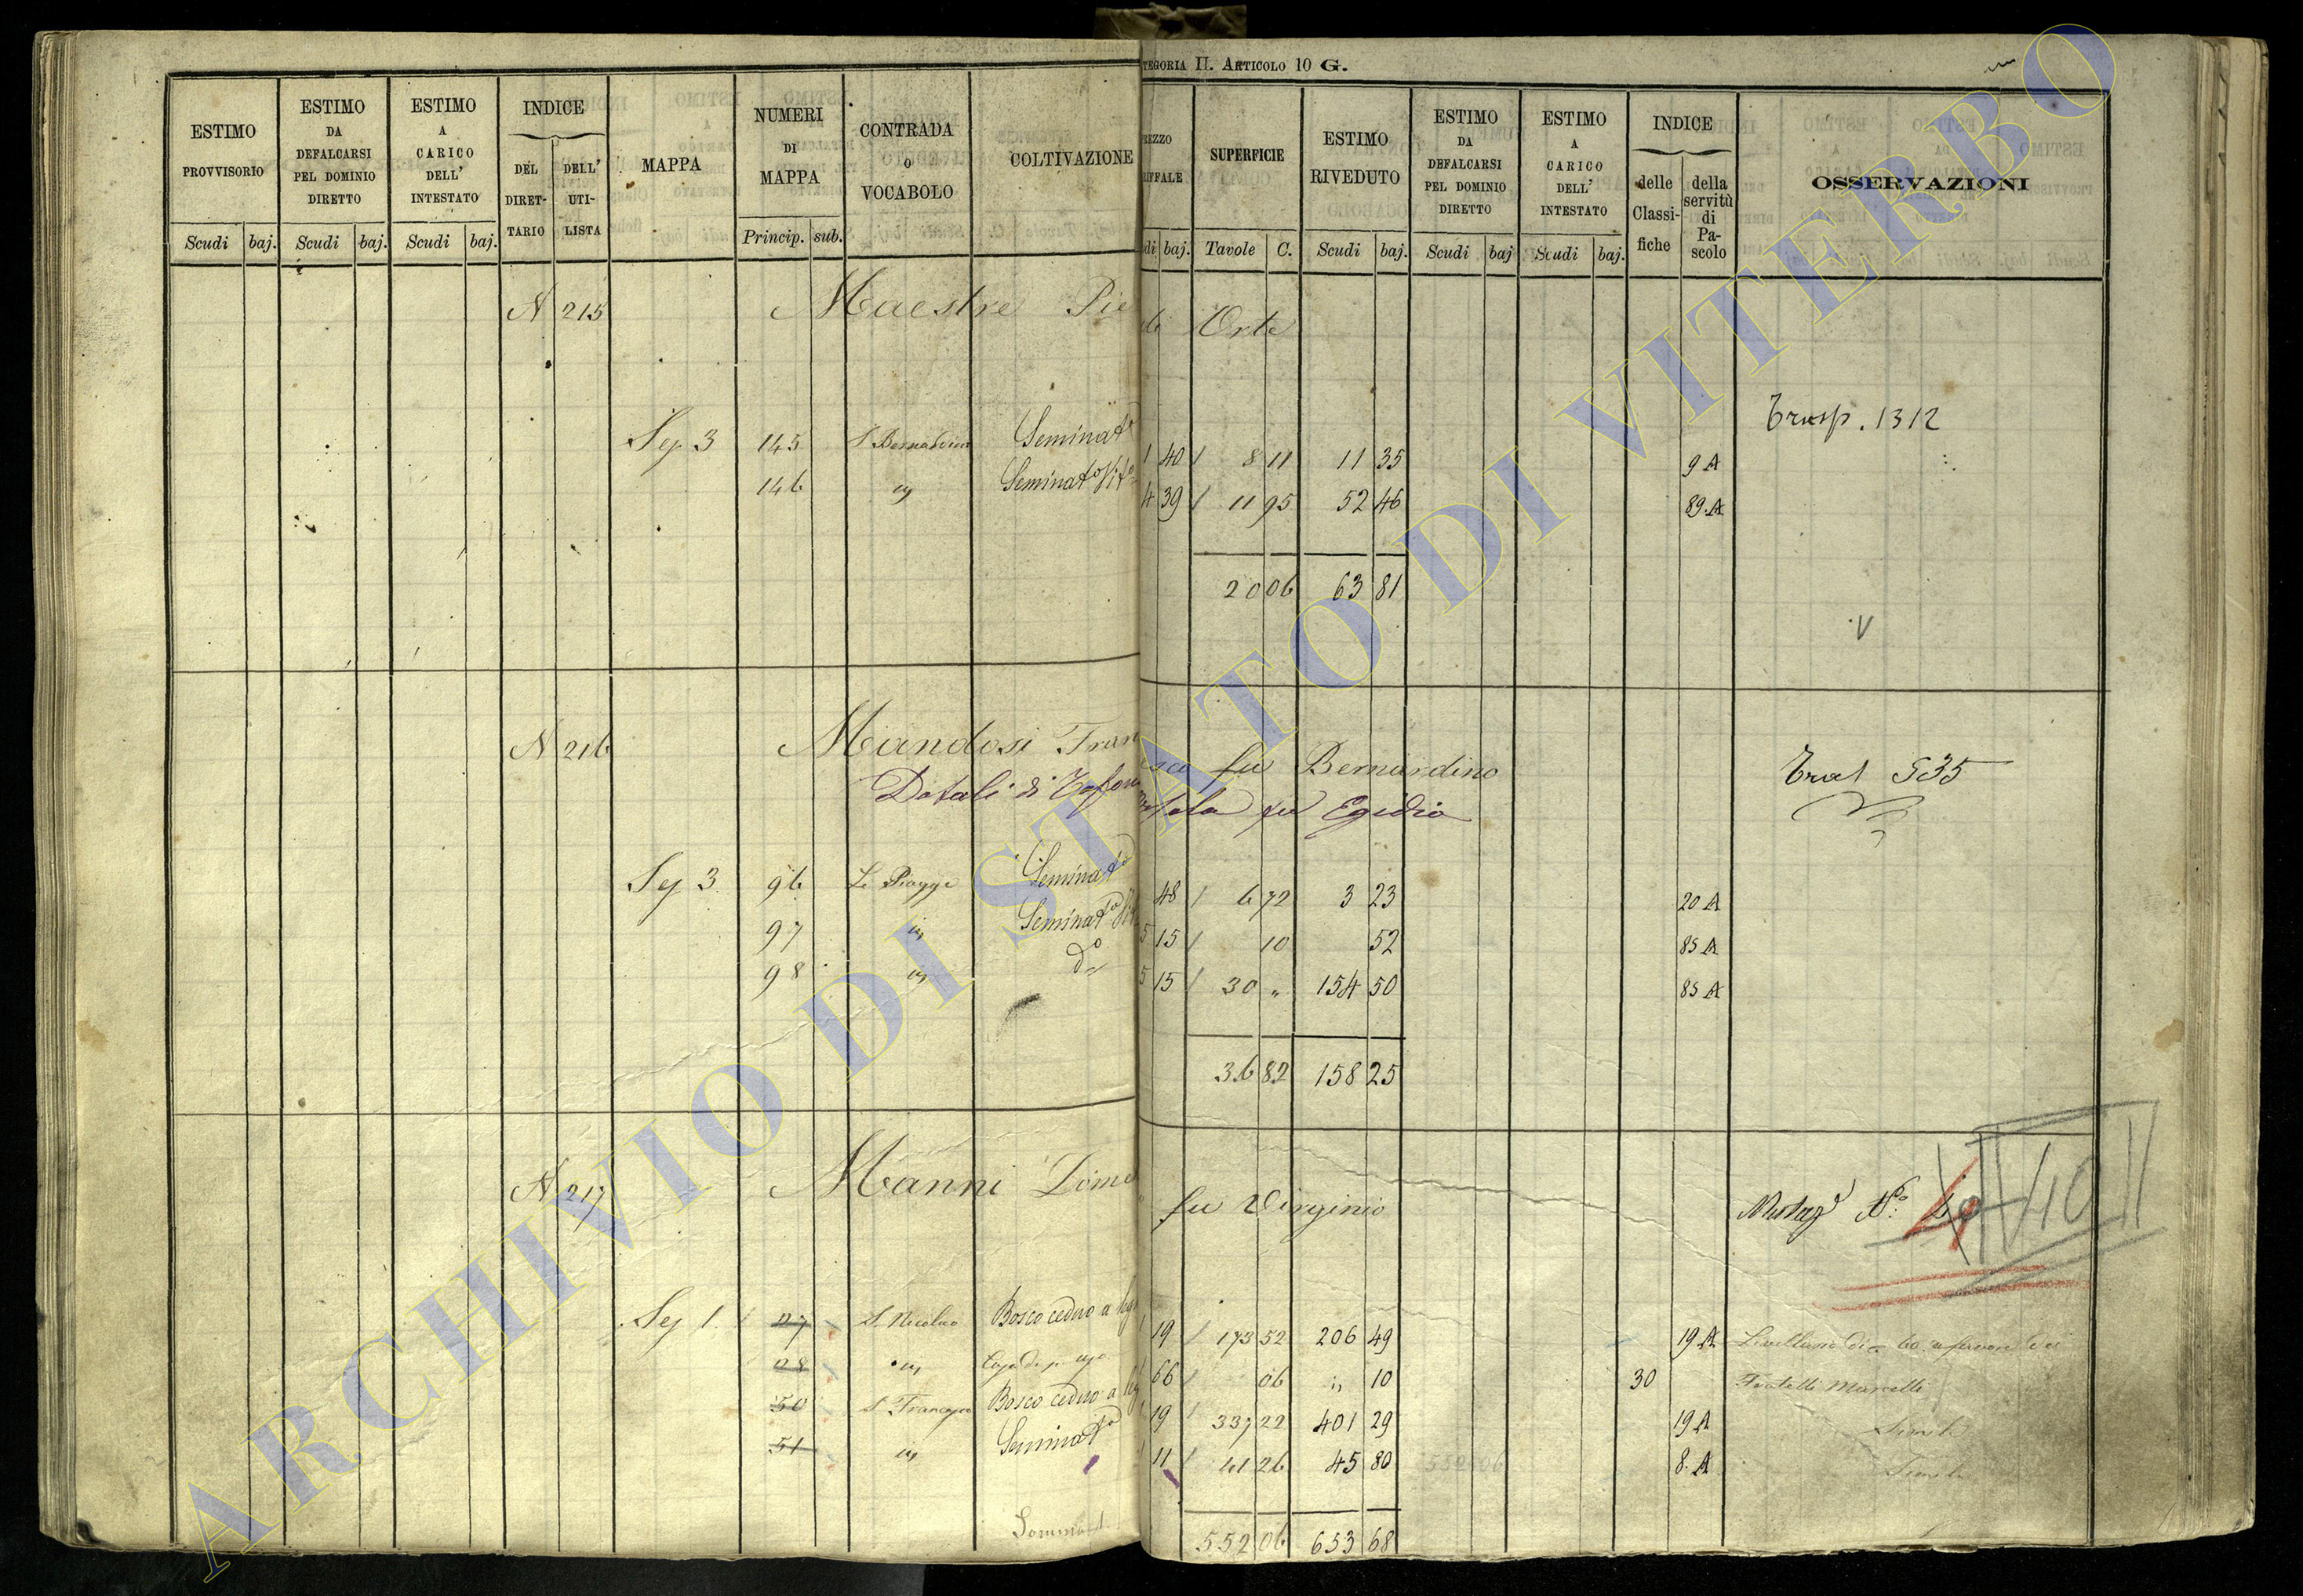 TEGORIA II. ARTICOLO 10 G.
ESTIMO PROVVISORIO
ESTIMO DA DEFALCARSI PEL DOMINIO DIRETTO
ESTIMO A CARICO DELL' INTESTATO
INDICE
DEL DIRET-TARIO
DELL' UTI-LISTA
MAPPA
NUMERI DI MAPPA
CONTRADA O VOCABOLO
COLTIVAZIONE
REZZO RIFFALE
SUPERFICIE
ESTIMO RIVEDUTO
ESTIMO DA DEFALCARSI PEL DOMINIO DIRETTO
ESTIMO A CARICO DELL' INTESTATO
INDICE
delle Classi-fiche
della servitù di Pa-scolo
OSSERVAZIONI
Scudi baj. Scudi baj. Scudi baj. Princip. sub.
di baj. Tavole C. Scudi baj. Scudi baj Scudi baj.
N 215 Maestre Pie di Orte
Trasp. 1312
Sez 3 145 S Bernardino Seminato 1 40 8 11 11 35 9 A
146 Seminato Vito 4 39 11 95 52 46 89. A
20 06 63 81
V
N 216 Mandosi Francesco fu Bernardino
Trat 535
Dotali di fu Egidio
Sez 3. 96 Le Piagge Seminato 48 6 72 3 23 20 A
97 Seminato Vit 5 15 10 52 85 A
98 do 5 15 30 " 154 50 85 A
36 82 158 25
N 217 Manni Dome fu Virginio
No. 4 40
Sez 1. 27 S. Nicolao Bosco ceduo a leg 19 173 52 206 49 19 A Livellario di 60. a favore dei
28 66 06 " 10 30 Fratelli Marcelli
50 S. Francesco Bosco ceduo a leg 19 337 22 401 29 19 A Simile
51 Seminato 11 41 26 45 80 552 06 8. A Simile
552 06 653 68
ARCHIVIO DI STATO DI VITERBO